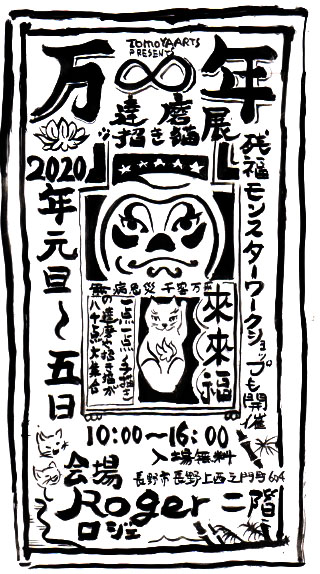 TOMOYAARTS
PRESENTS
万年
達磨
招き猫
展
2020
年元旦〜五日
残福モンスターワークショップも開催
無病息災 千客万来
來來福
一点一点手描き
の達磨や招き猫が
八十点大集合
10:00〜16:00
入場無料
会場
長野市長野上西之門町604
Roger 二階
ロジェ